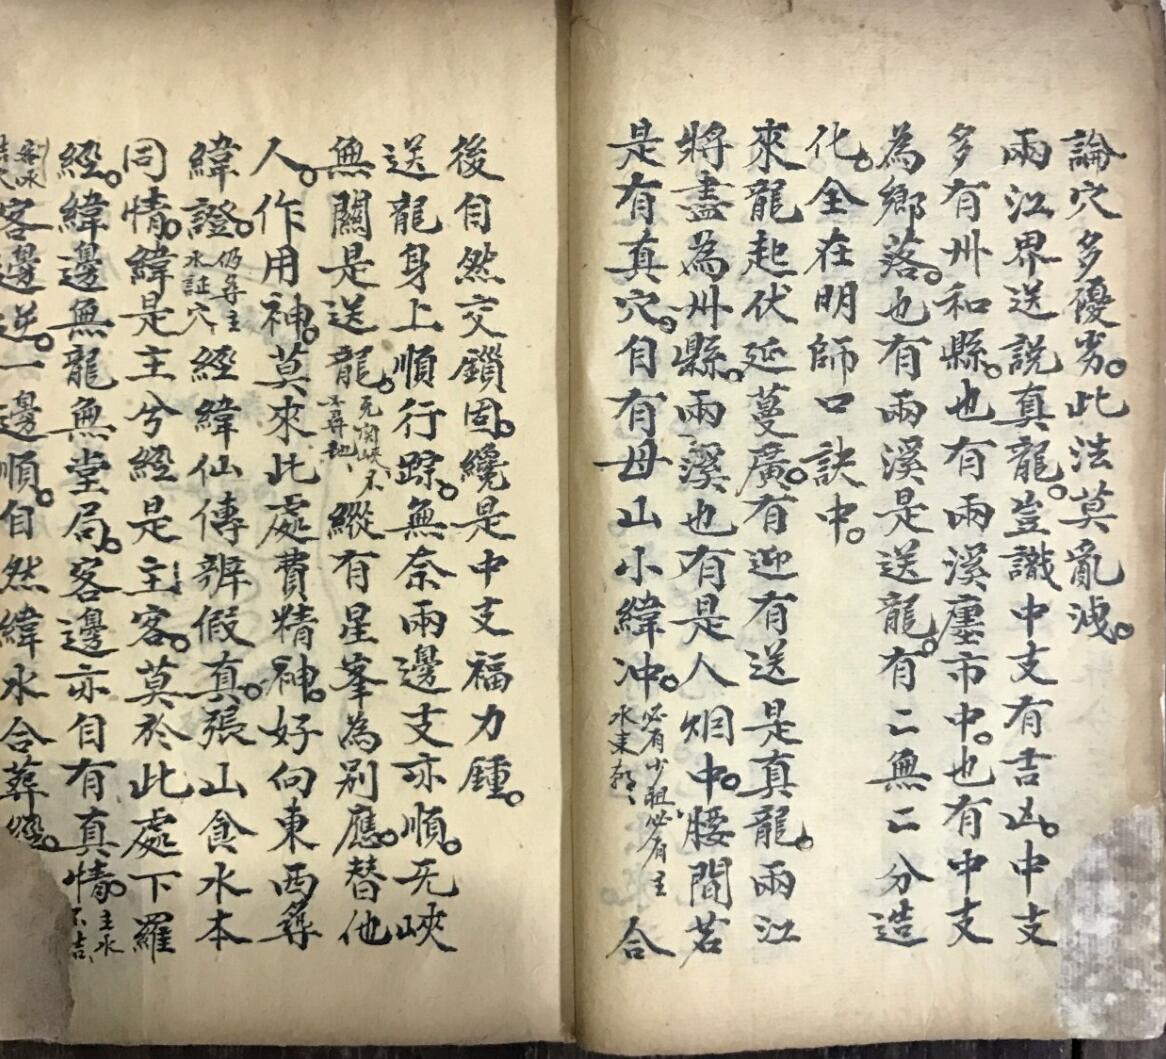 論穴多優劣。此法莫亂洩。
兩江界送説真龍。豈識中支有吉凶。中支
多有州和縣。也有兩溪廛市中。也有中支
為鄉落。也有兩溪是送龍。有二無二分造
化。全在明師口訣中。
來龍起伏延蔓廣。有迎有送是真龍。兩江
將盡為州縣。兩溪也有是人烟中。腰間若
是有真穴。自有母山小緯冲。必有少祖必有主水来朝、合
後自然交鎖固。纔是中支福力鍾。
送龍身上順行踪。無奈兩邊支亦順。无峽
無關是送龍。无関峽、不不尋地、縱有星峯為别應。替他
人。作用神。莫來此處費精神。好向東西尋
緯證。仍尋主水証穴經緯仙傳辨假真。張山食水本
同情。緯是主兮經是主客。莫於此處下羅
經。緯邊無龍無堂局。客邊亦自有真情。主水不吉、
客水吉穴客邊逆。一邊順。自然緯水合葬經。